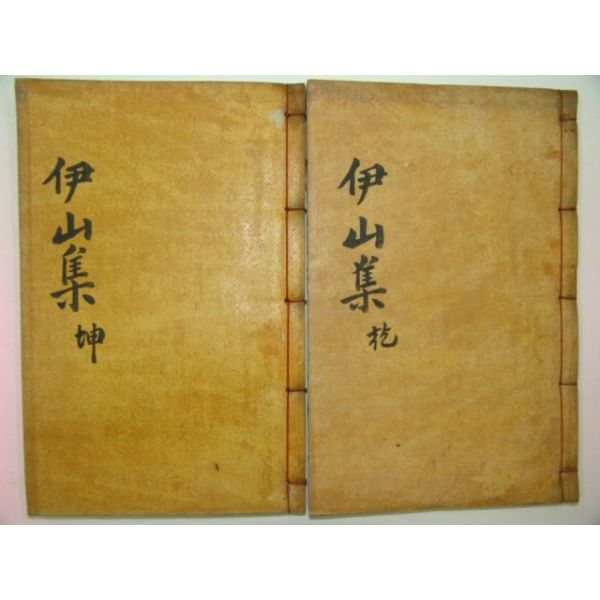 伊山集 乾
伊山集 坤